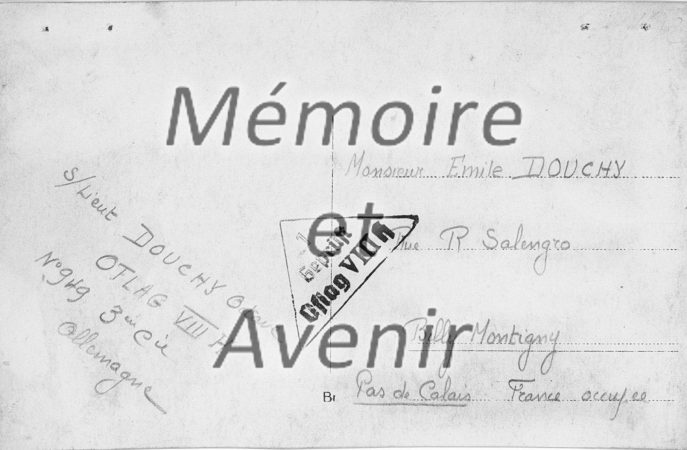 Mémoire
et
Avenir
Monsieur Emile DOUCHY
Rue R Salengro
Billy Montigny
Pas de Calais France occupée
S/Lieut DOUCHY
OTLAG VIII H
N° 949 3em Cie
Allemagne
Geprüft
Oflag VIII H